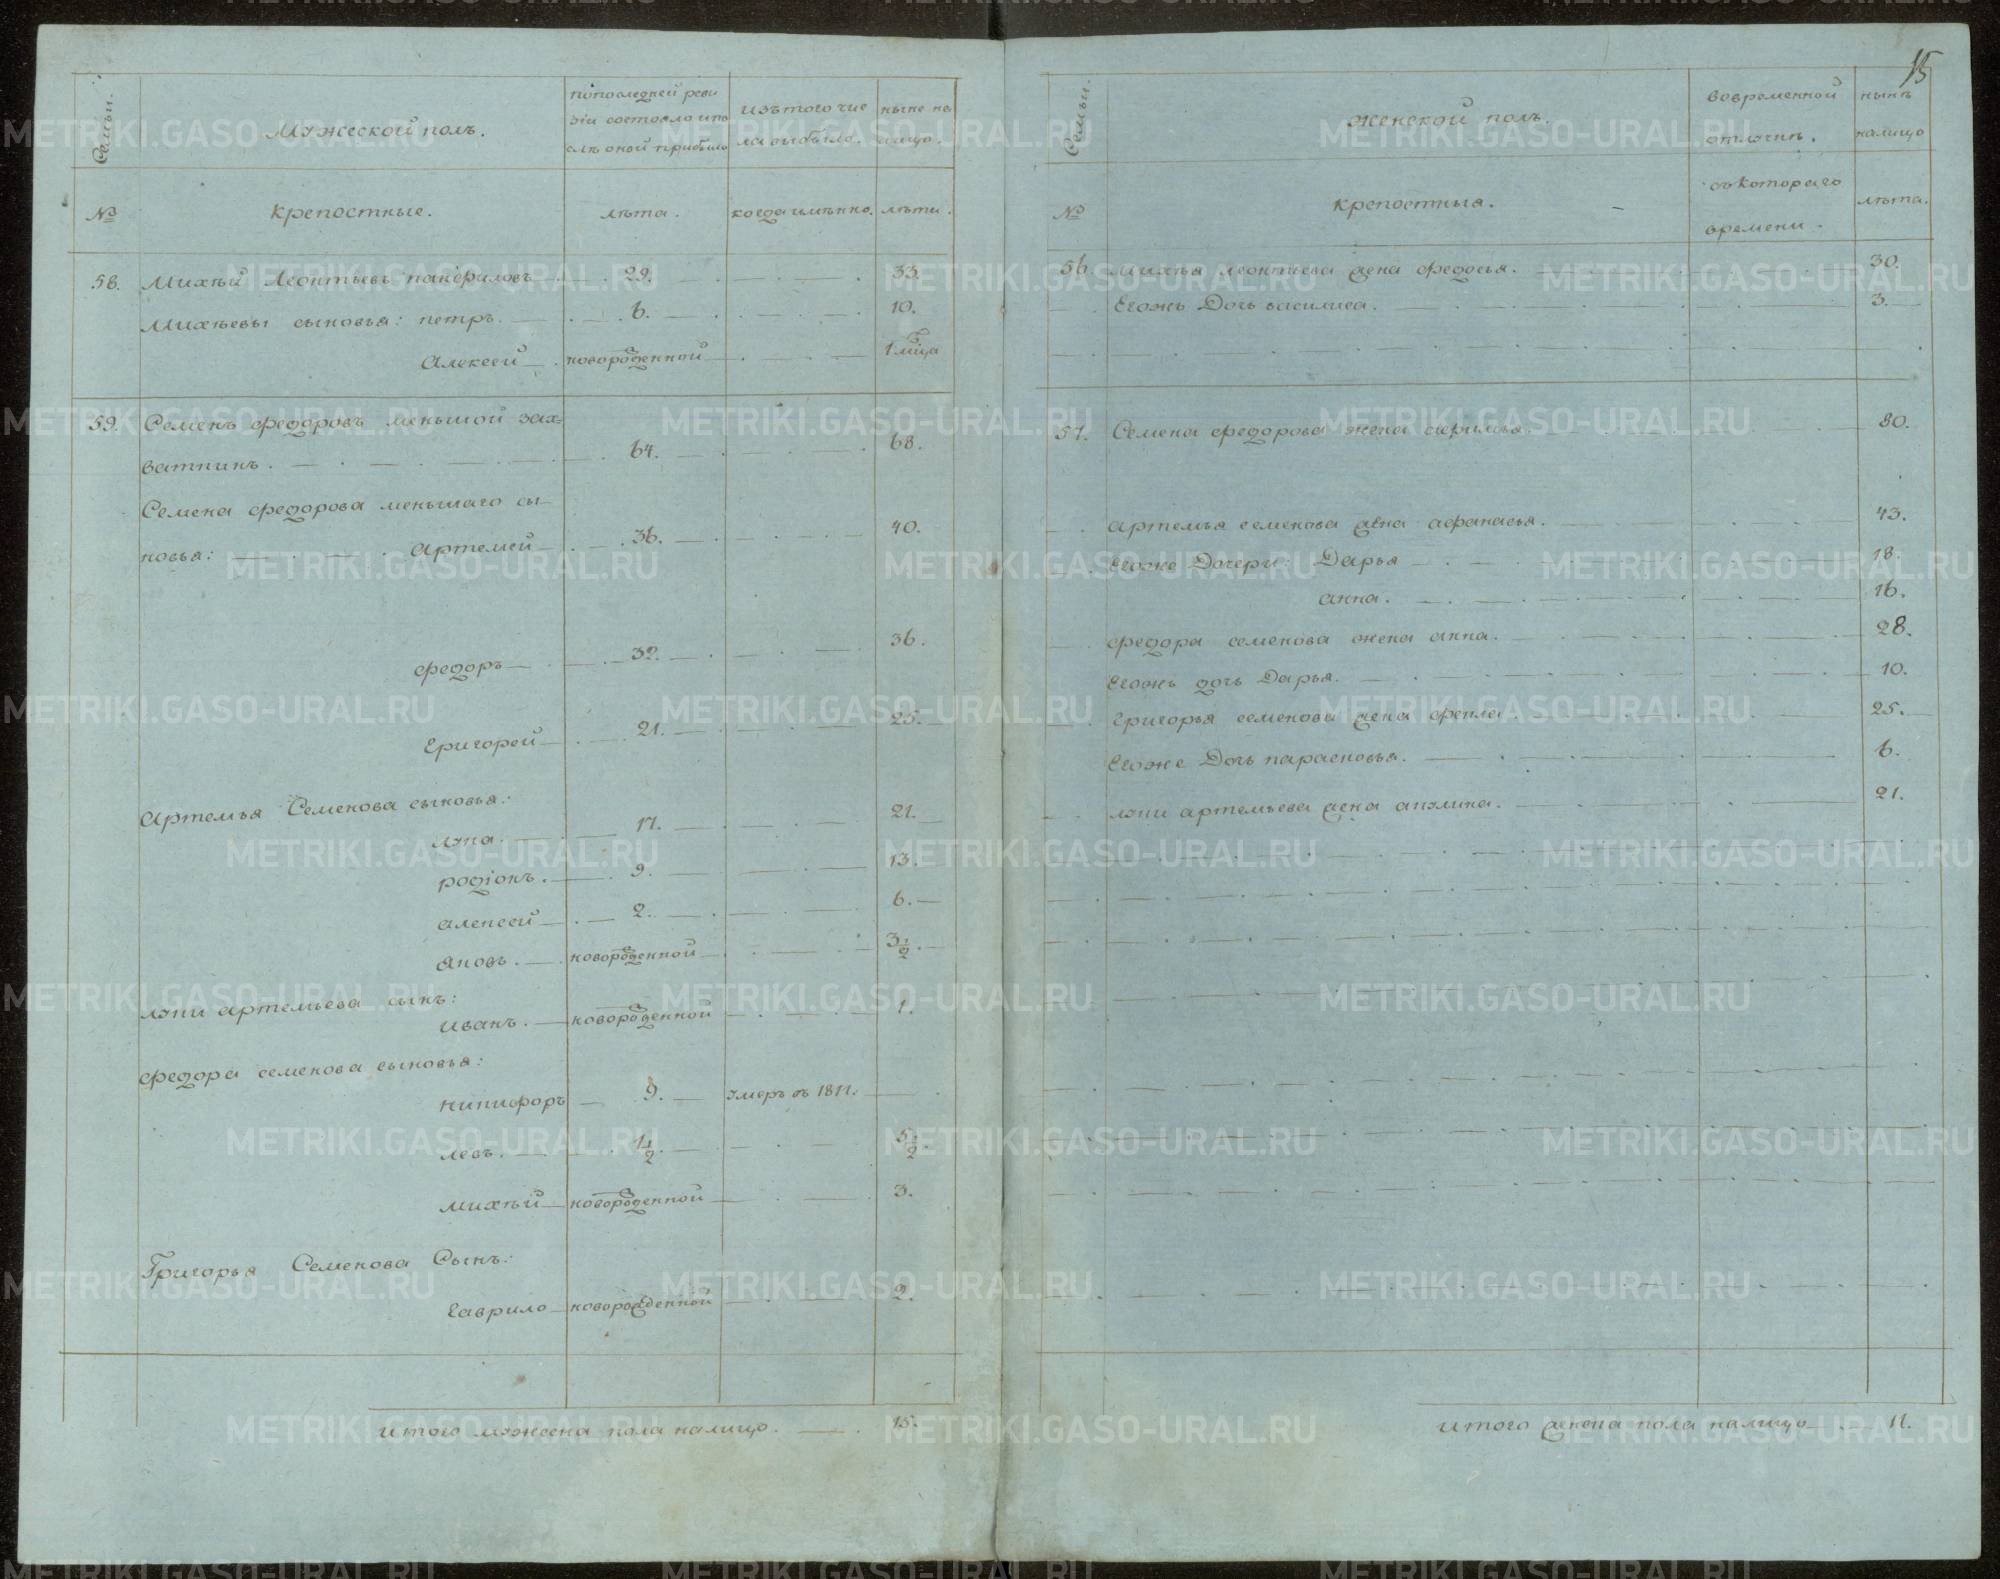 15
Семьи.
Мужеской полъ.
попоследней реви
зіи состояло ипо
слѣ оной прибыло
изътого чис
ла выбыло.
ныне на
лицо.
№
крепостные.
лѣта.
когда имѣнно.
лѣта.
58. Михѣй Леонтьевъ панфиловъ 29. 33.
Михѣевы сыновья: петръ. 6. 10.
Алексей новорожденной 1 мца
59. Семенъ федоровъ меньшой зах-
ваткинъ. 64. 68.
Семена федорова меньшаго сы-
новья: артемей 36. 40.
федоръ 32. 36.
Григорей 21. 25.
Артемья Семенова сыновья:
лупа. 17. 21.
родіонъ. 9. 13.
алексей 2. 6.
яковъ. новорожденной 3 1/2.
лупи артемьева сынъ:
иванъ. новорожденной 1.
федора семенова сыновья:
никифоръ 9. умеръ въ 1811.
левъ. 1 1/2. 5 1/2
михѣй новорожденной 3.
Григорья Семенова Сынъ:
Гаврило новорожденной 2.
итого мужеска пола налицо. 15.
Семьи.
женской полъ.
вовременной
отлучке.
нынѣ
налицо
№
крепостныя.
съкотораго
времени.
лѣта.
56. Михѣя леонтьева жена федосья. 30.
Егожъ Дочь василиса. 3.
57. Семена федорова жена афимья. 80.
артемья семенова жена афанасья. 43.
Егоже Дочери: Дарья 18.
анна. 16.
федора семенова жена анна. 28.
Егожъ дочь Дарья. 10.
Григорья семенова жена фекла. 25.
Егоже Дочь парасковья. 6.
лупи артемьева жена акулина. 21.
итого женска пола налицо 11.
METRIKI.GASO-URAL.RU